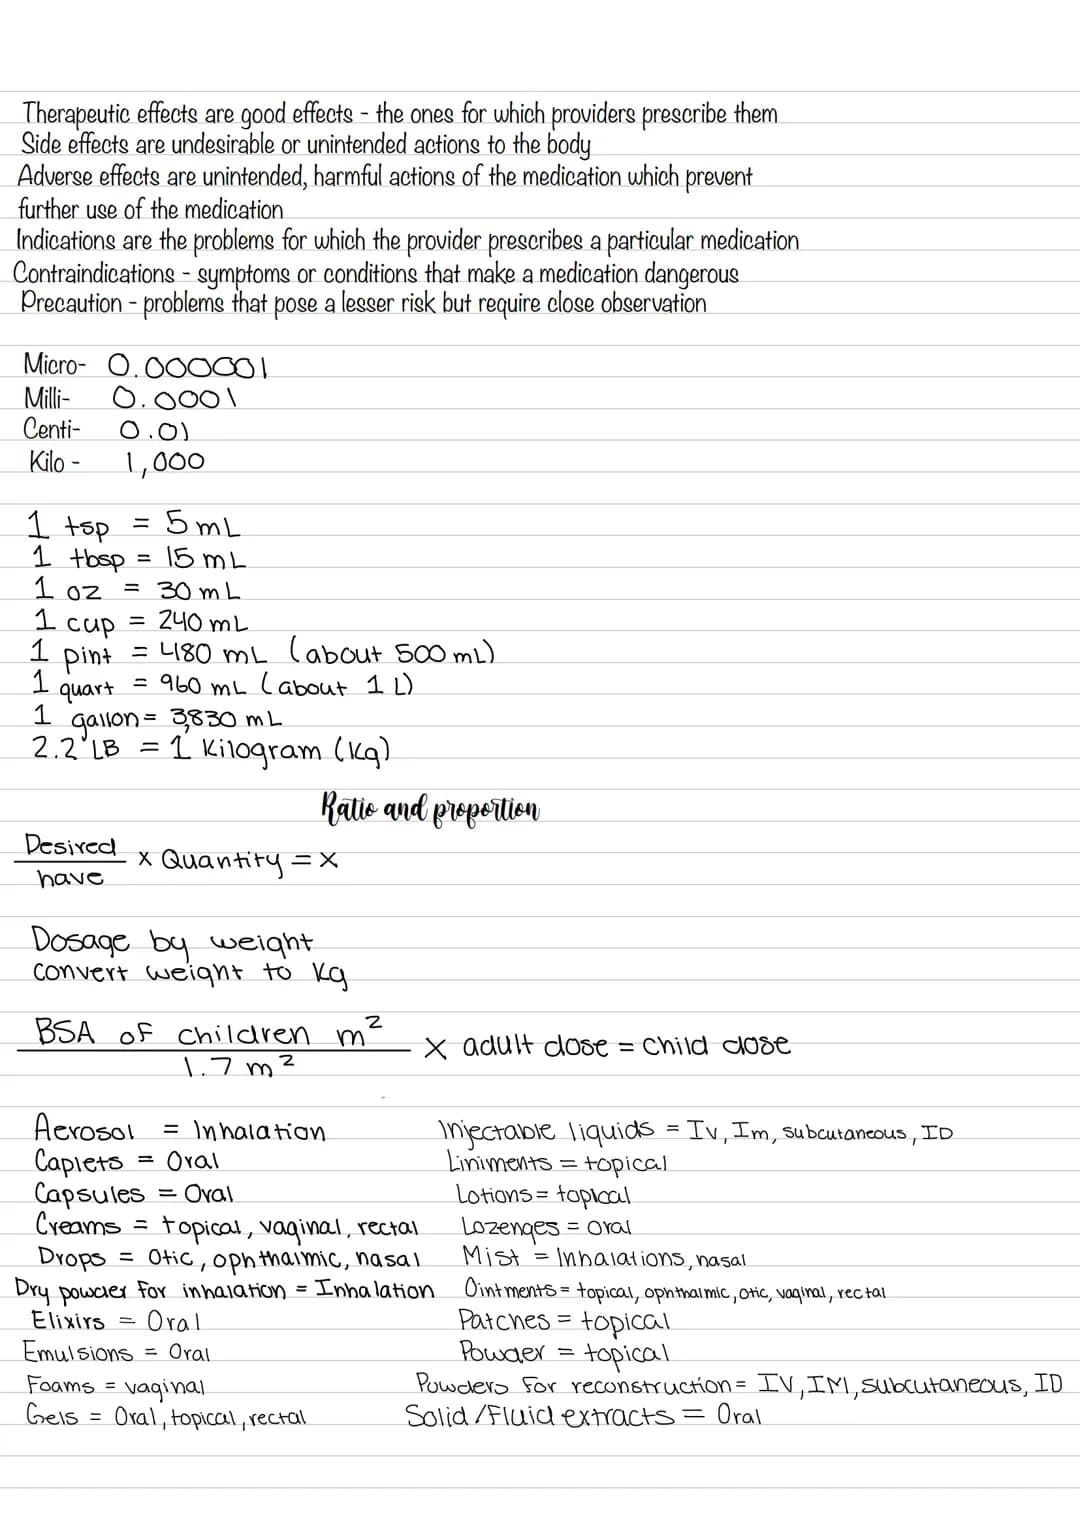 Therapeutic effects are good effects - the ones for which providers prescribe them
Side effects are undesirable or unintended actions to the body
Adverse effects are unintended, harmful actions of the medication which prevent
further use of the medication
Indications are the problems for which the provider prescribes a particular medication
Contraindications - symptoms or conditions that make a medication dangerous
Precaution - problems that pose a lesser risk but require close observation
Micro- 0.000001
Milli- 0.0001
Centi- 0.01
Kilo - 1,000
1 tsp = 5 mL
1 tbsp = 15 mL
1 oz = 30 mL
1 cup = 240 mL
1 pint = 480 mL (about 500 mL)
1 quart = 960 mL (about 1 L)
1 gallon = 3,830 mL
2.2 LB = 1 Kilogram (Kg)
Ratio and proportion
Desired
have
x Quantity = x
Dosage by weight
convert weight to Kg
BSA of children m²
1.7 m²
x adult dose = child dose
Aerosol = Inhalation
Caplets = Oral
Capsules = Oral
Creams = topical, vaginal, rectal
Drops = Otic, ophthalmic, nasal
Dry powder for inhalation = Inhalation
Elixirs = Oral
Emulsions = Oral
Foams = vaginal
Gels = Oral, topical, rectal
Injectable liquids = Iv, Im, subcutaneous, ID
Liniments = topical
Lotions = topical
Lozenges = oral
Mist = Inhalations, nasal
Ointments = topical, ophthalmic, otic, vaginal, rectal
Patches = topical
Powder = topical
Powders for reconstruction = IV, IM, subcutaneous, ID
Solid / Fluid extracts = Oral